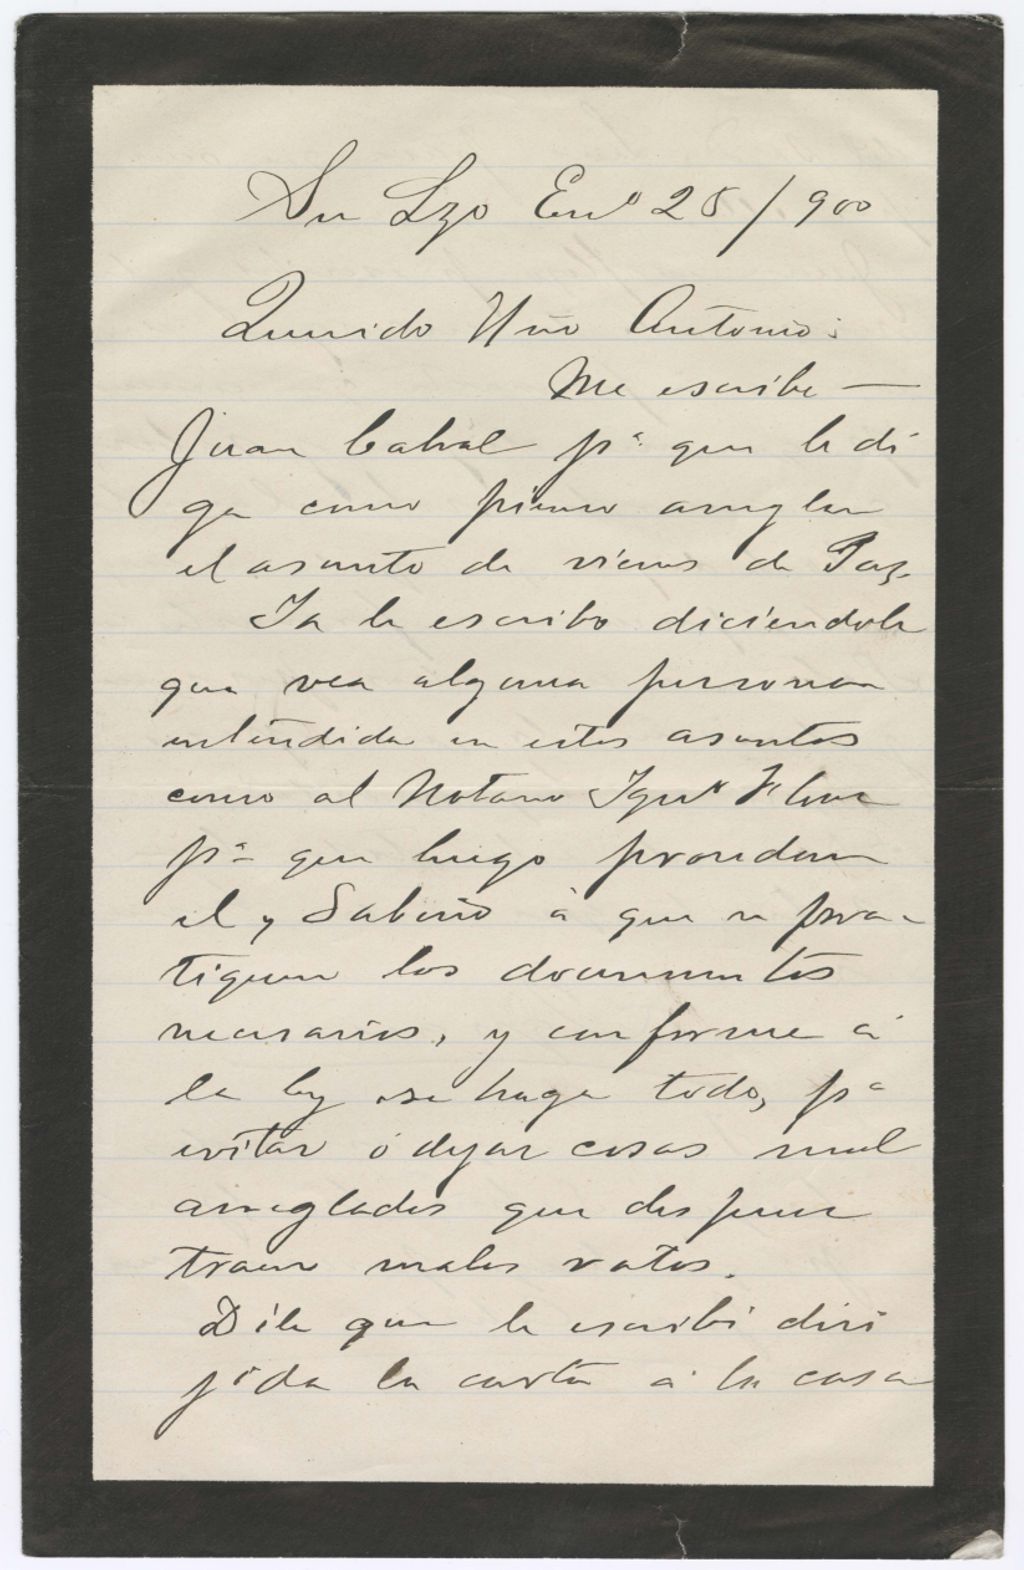 Sn Lzo Eno 25/900
Querido Antonio:
Me escribe —
Juan Cabral pa. que le di
ga como pienso arreglar
el asunto de vienes de Paz.
Ya le escribo diciendole
que vea alguna persona
entendida en estos asuntos
como al Notario
pa que luego procedan
el y Sabino á que se prac
tiquen los documentos
necesarios, y conforme á
la ley se haga todo, pa
evitar ó dejar cosas mal
arregladas que despues
traen malos ratos.
Dile que le escribi diri
jida la carta á la casa